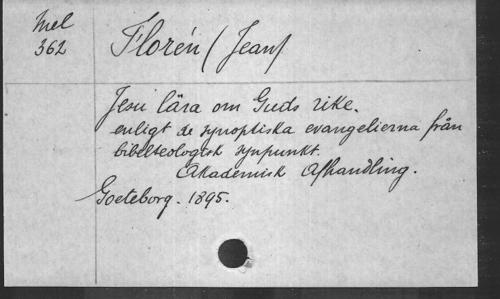 Mel
362
Florén (Jean)
Jesu lära om Guds rike.
enligt de synoptiska evangelierna från
bibelteologisk synpunkt.
Akademisk Afhandling.
Goeteborg. 1895.